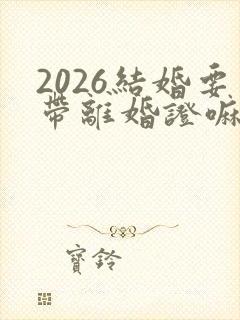 2026結婚要
帶離婚證嘛
寶鈴